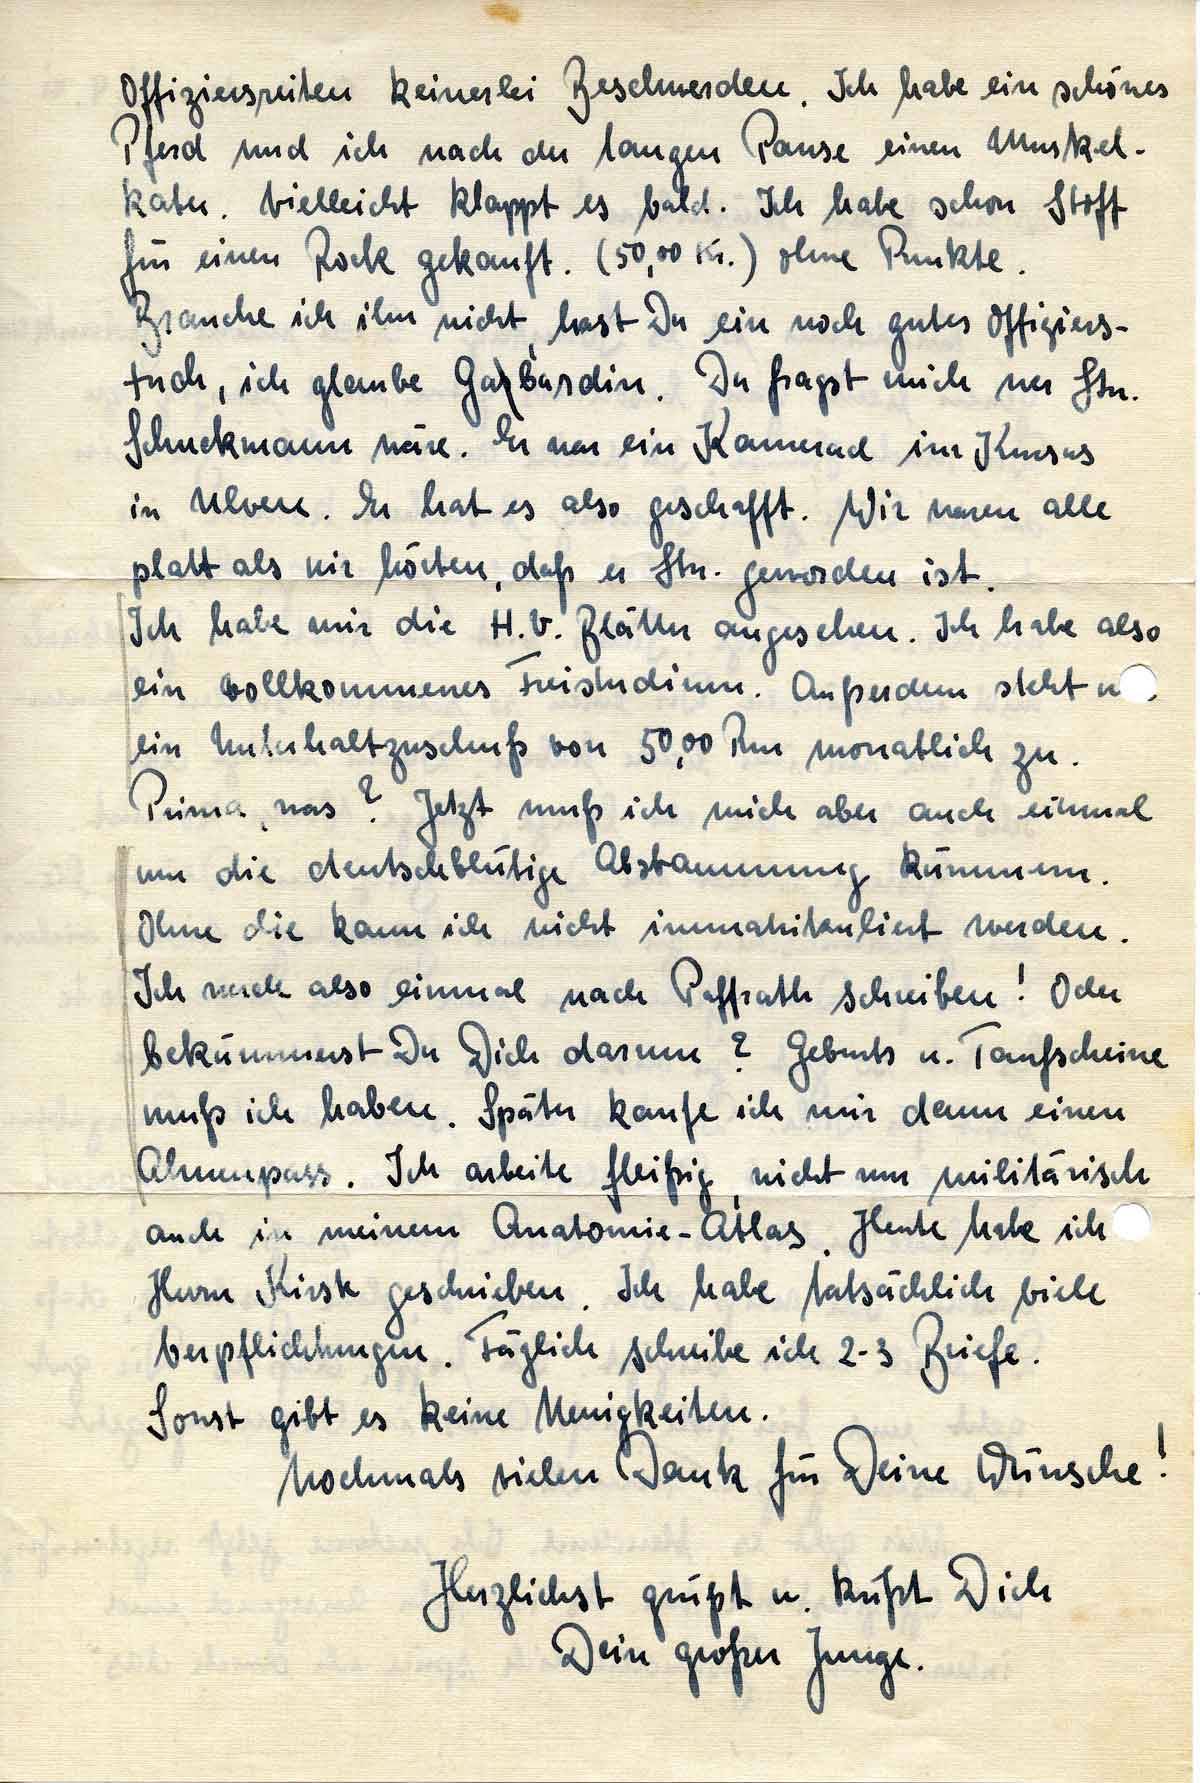 Offiziersreiten keinerlei Beschwerden. Ich habe ein schönes
Pferd und ich nach der langen Pause einen Muskel-
kater. Vielleicht klappt es bald. Ich habe schon Stoff
für einen Rock gekauft. (50,00 Kr.) ohne Punkte.
Brauche ich ihn nicht, hast Du ein noch gutes Offiziers-
tuch, ich glaube Gabardin. Du fragst mich wer Stn.
Schuckmann wäre. Er war ein Kamerad im Kursus
in Ulven. Er hat es also geschafft. Wir waren alle
platt als wir hörten, daß er Stn. geworden ist.
Ich habe mir die H.V. Blätter angesehen. Ich habe also
ein vollkommenes Freistudium. Außerdem steht
ein Unterhaltzuschuß von 50,00 Rm monatlich zu.
Prima, was? Jetzt muß ich mich aber auch einmal
um die deutschblütige Abstammung kümmern.
Ohne die kann ich nicht immatrikuliert werden.
Ich werde also einmal nach Paffrath schreiben! Oder
bekümmerst Du Dich darum? Geburts u. Taufscheine
muß ich haben. Später kaufe ich mir dann einen
Ahnenpass. Ich arbeite fleißig, nicht nur militärisch
auch in meinem Anatomie-Atlas. Heute habe ich
Herrn Kirsk geschrieben. Ich habe tatsächlich viele
Verpflichtungen. Täglich schreibe ich 2-3 Briefe.
Sonst gibt es keine Neuigkeiten.
Nochmals vielen Dank für Deine Wünsche!
Herzlichst grüßt u. küßt Dich
Dein großer Junge.